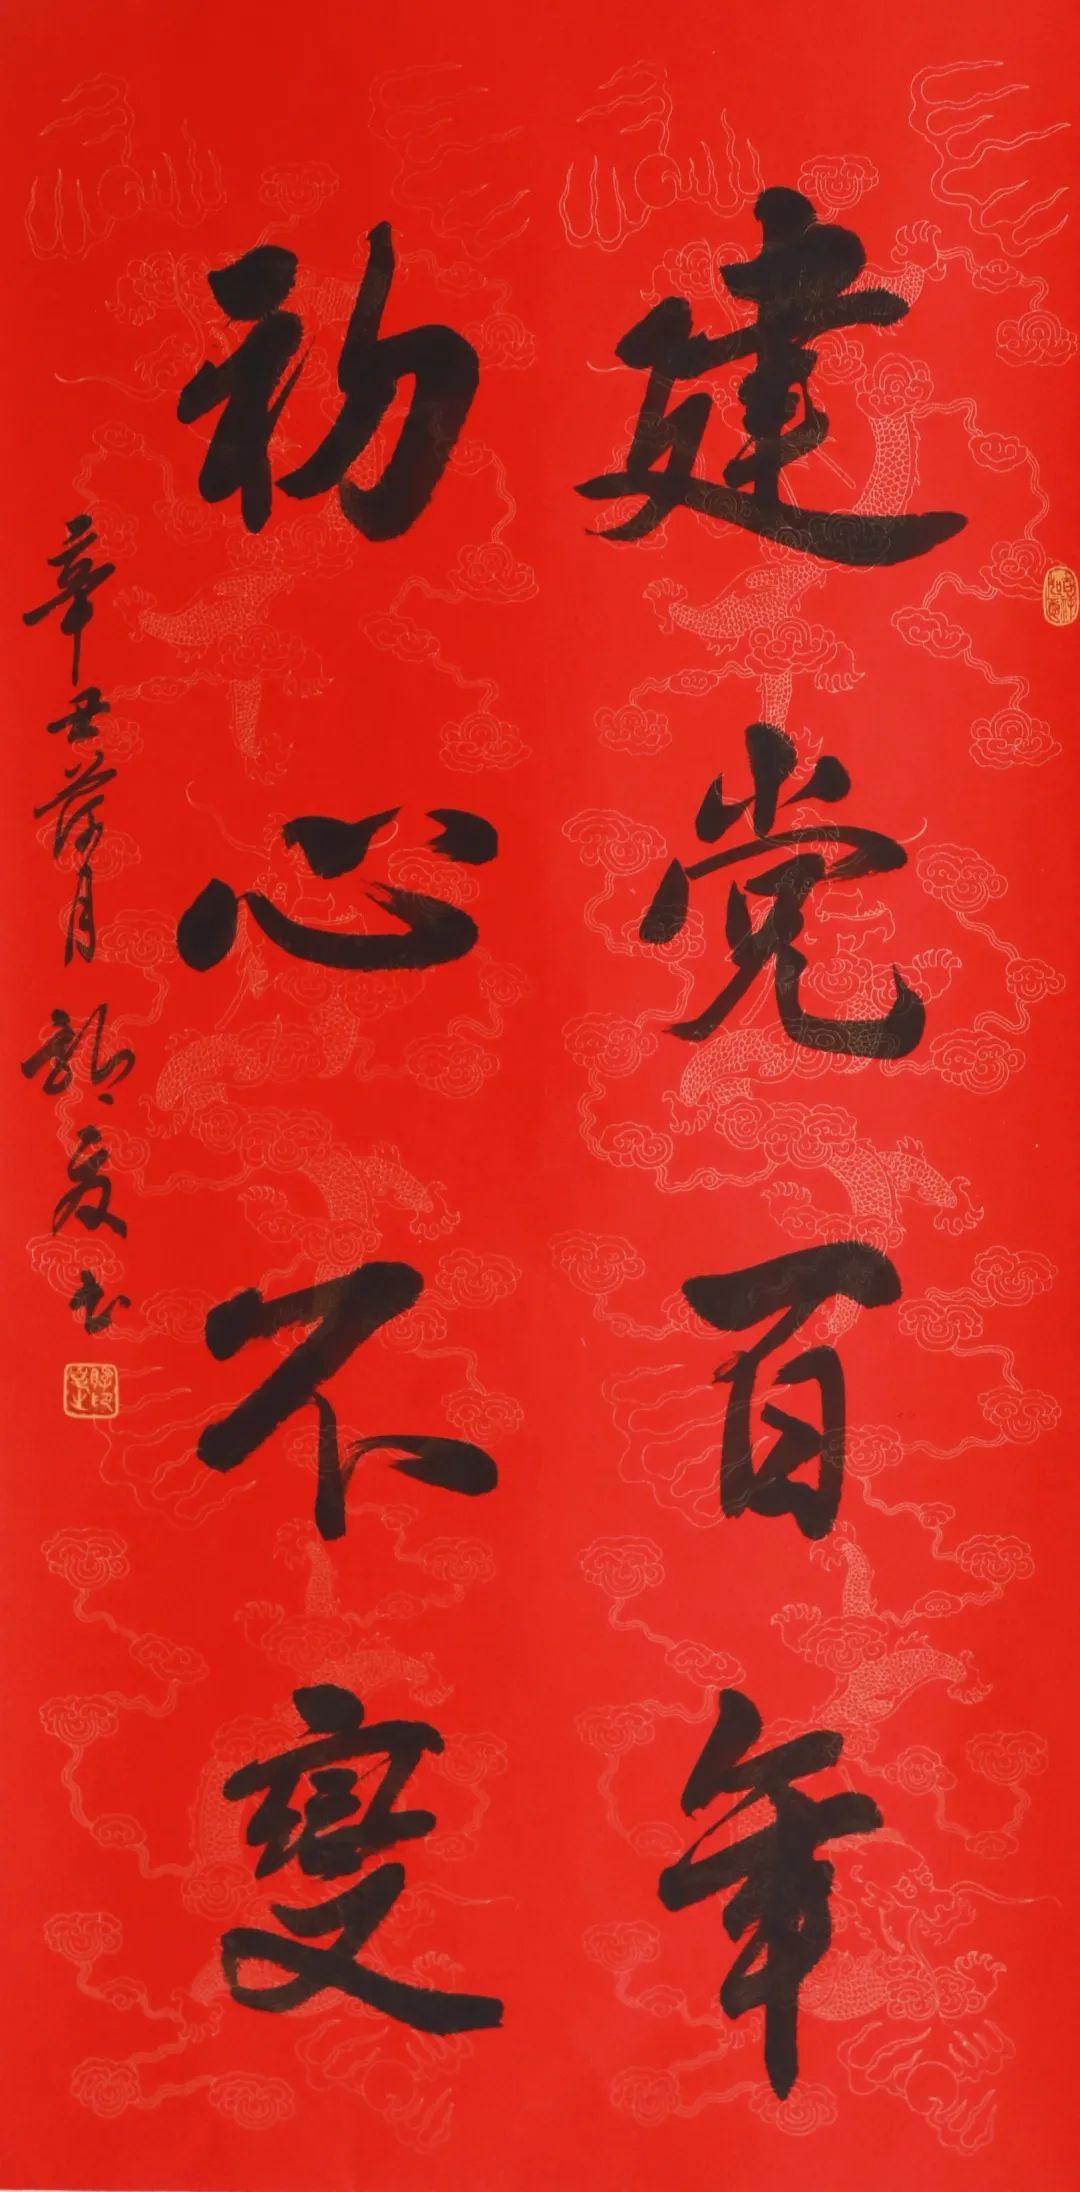 建党百年
初心不变
辛丑荷月
书